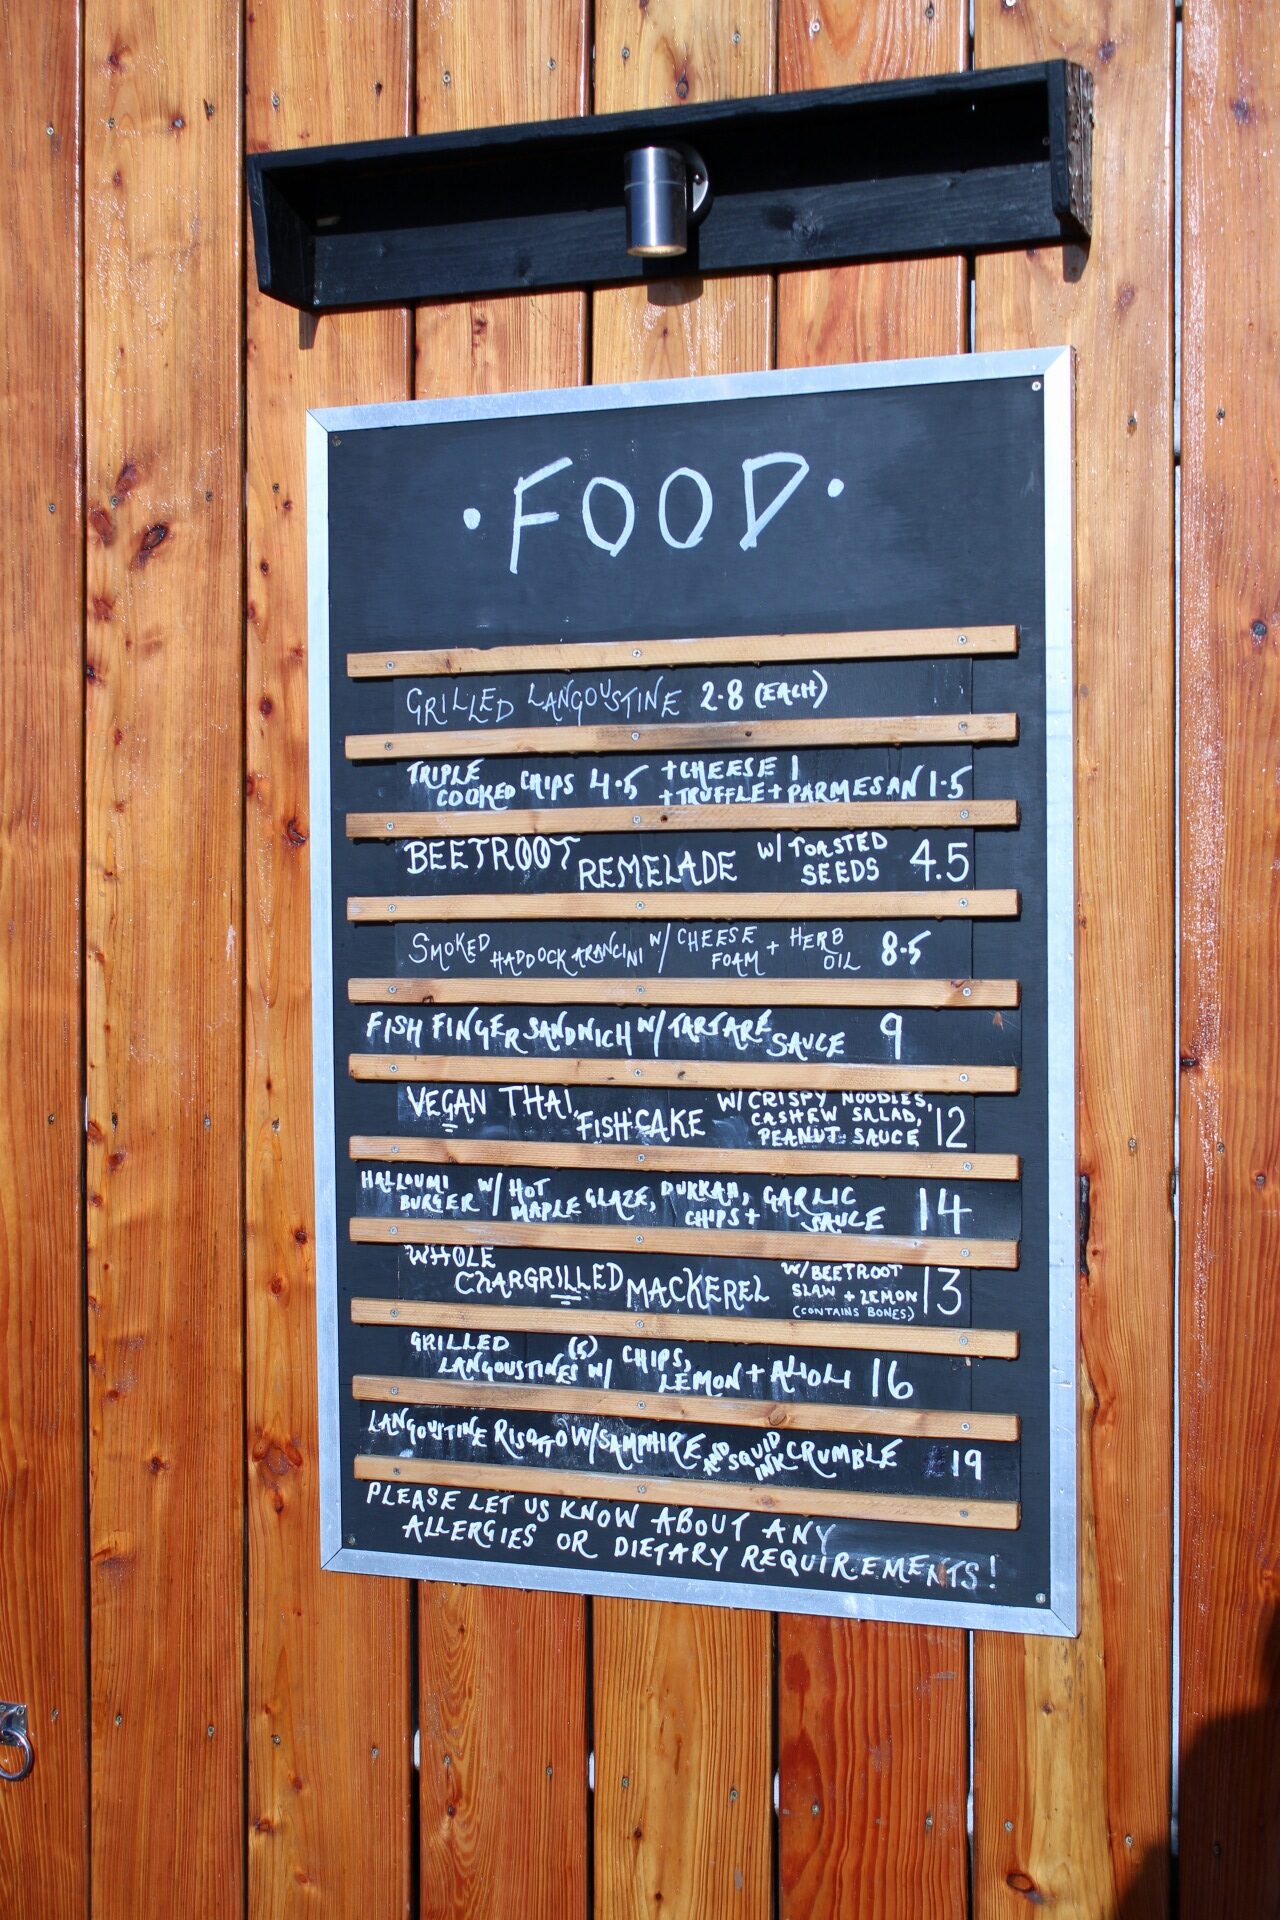 ·FOOD·
GRILLED LANGOUSTINE 2·8 (EACH)
TRIPLE COOKED CHIPS 4·5 +CHEESE 1
+TRUFFLE + PARMESAN 1·5
BEETROOT REMELADE W/ TOASTED SEEDS 4.5
SMOKED HADDOCK ARANCINI W/ CHEESE FOAM + HERB OIL 8·5
FISH FINGER SANDWICH W/ TARTARE SAUCE 9
VEGAN THAI FISHCAKE W/ CRISPY NOODLES, CASHEW SALAD, PEANUT SAUCE 12
HALLOUMI BURGER W/ HOT MAPLE GLAZE, DUKKAH, CHIPS + GARLIC SAUCE 14
WHOLE CHARGRILLED MACKEREL W/ BEETROOT SLAW + LEMON (CONTAINS BONES) 13
GRILLED LANGOUSTINES (5) W/ CHIPS, LEMON + AIOLI 16
LANGOUSTINE RISOTTO W/ SAMPHIRE AND SQUID INK CRUMBLE 19
PLEASE LET US KNOW ABOUT ANY
ALLERGIES OR DIETARY REQUIREMENTS!